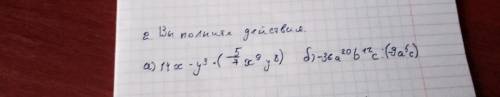 2. Выполните действия.
а) 14x · y³ · (-5/7 x⁹ y⁸) б) -36a²⁰b¹²c : (-9a⁵c)